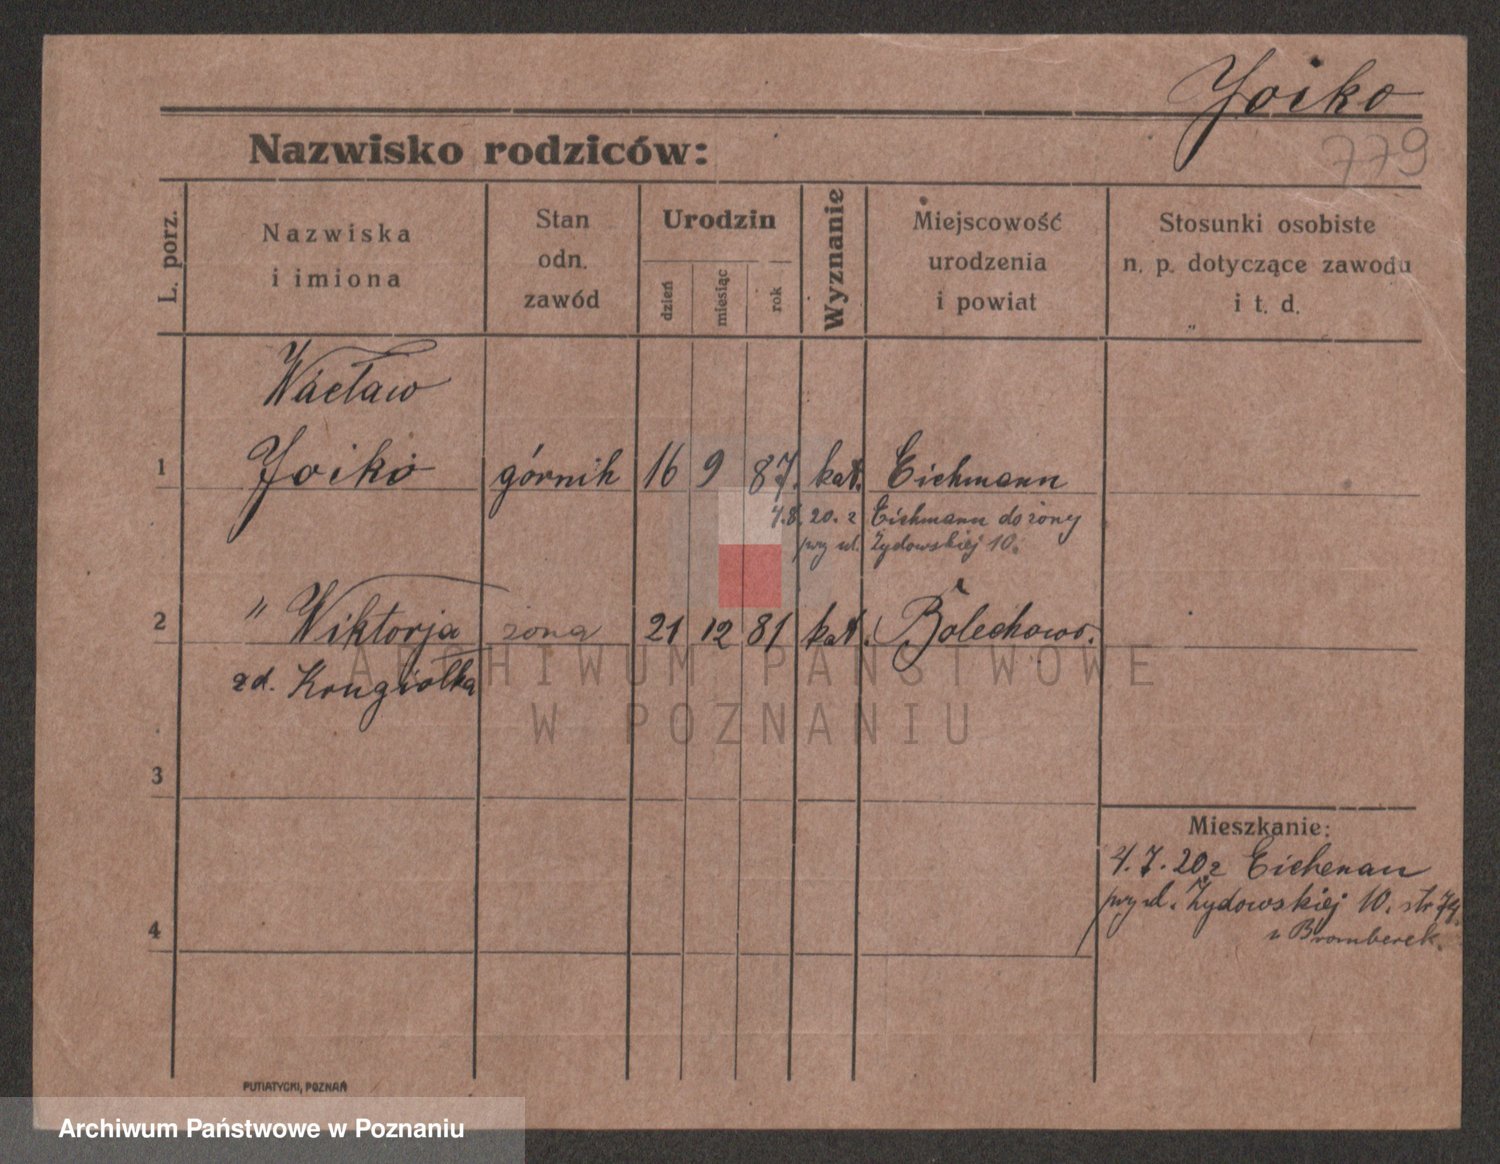 Joiko
779
Nazwisko rodziców:
L. porz.
Nazwiska
i imiona
Stan
odn.
zawód
Urodzin
dzień
miesiąc
rok
Wyznanie
Miejscowość
urodzenia
i powiat
Stosunki osobiste
n. p. dotyczące zawodu
i t. d.
Wacław
1 Joiko górnik 16 9 87. kat. Eichmann
4.8. 20. z Eichmann do żony
przy ul. Żydowskiej 10.
2 " Wiktorja żona 21 12 81 kat. Bolechowo.
zd. Krugiołka
ARCHIWUM PAŃSTWOWE
W POZNANIU
3
Mieszkanie:
4. 7. 20 z Eichenau
przy ul. Żydowskiej 10. str 79.
u Bromberek.
4
PUTIATYCKI, POZNAŃ
Archiwum Państwowe w Poznaniu